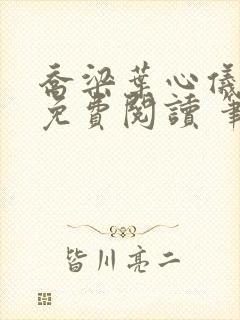 喬梁葉心儀
免費閱讀 筆
皆川亮二